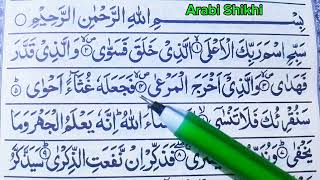 Arabi Shikhi
بِسْمِ اللهِ الرَّحْمٰنِ الرَّحِيْمِ
سَبِّحِ اسْمَ رَبِّكَ الْاَعْلَى ۙ﴿١﴾ الَّذِيْ خَلَقَ فَسَوّٰى ۙ﴿٢﴾ وَالَّذِيْ قَدَّرَ
فَهَدٰى ۙ﴿٣﴾ وَالَّذِيْٓ اَخْرَجَ الْمَرْعٰى ۙ﴿٤﴾ فَجَعَلَهٗ غُثَآءً اَحْوٰى ؕ﴿٥﴾
سَنُقْرِئُكَ فَلَا تَنْسٰٓى شَآءَ اللهُ ؕ اِنَّهٗ يَعْلَمُ الْجَهْرَ وَمَا
يَخْفٰى ؕ﴿٧﴾ فَذَكِّرْ اِنْ نَّفَعَتِ الذِّكْرٰى ؕ﴿٩﴾ سَيَذَّكَّرُ